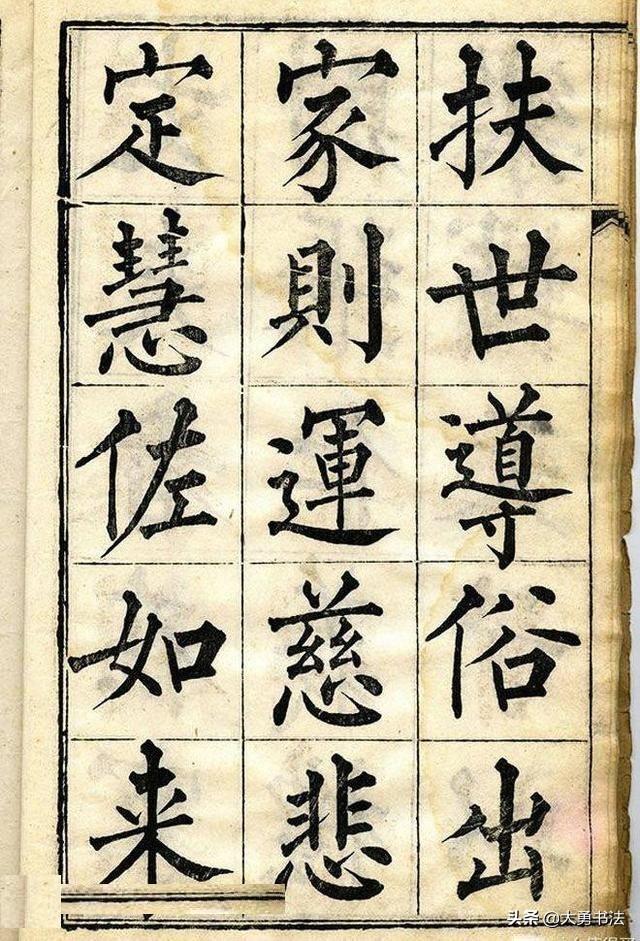 扶世導俗出
家則運慈悲
定慧佐如来
头条 @大勇书法